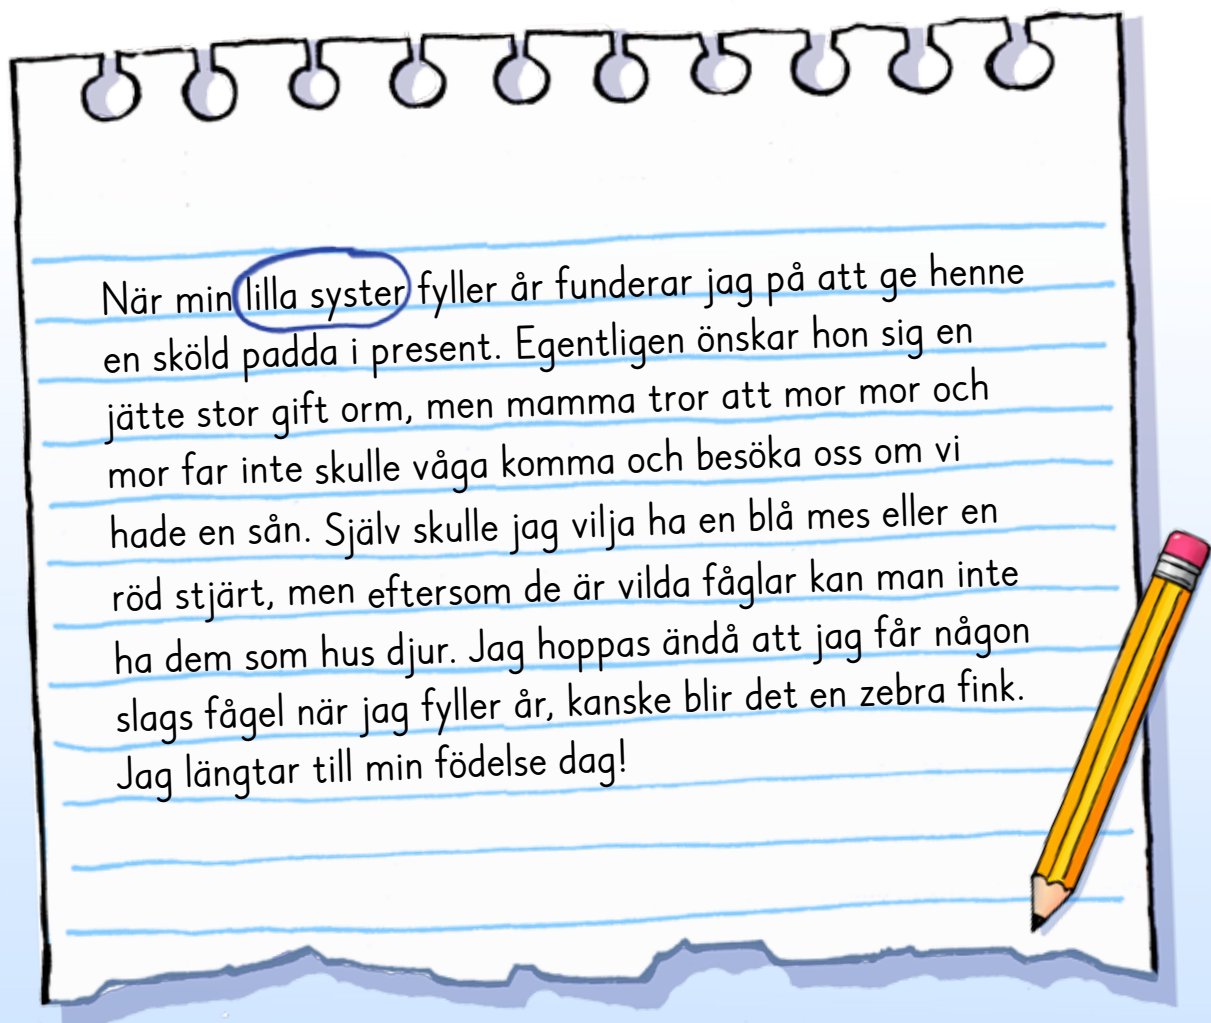 När min lilla syster fyller år funderar jag på att ge henne
en sköld padda i present. Egentligen önskar hon sig en
jätte stor gift orm, men mamma tror att mor mor och
mor far inte skulle våga komma och besöka oss om vi
hade en sån. Själv skulle jag vilja ha en blå mes eller en
röd stjärt, men eftersom de är vilda fåglar kan man inte
ha dem som hus djur. Jag hoppas ändå att jag får någon
slags fågel när jag fyller år, kanske blir det en zebra fink.
Jag längtar till min födelse dag!